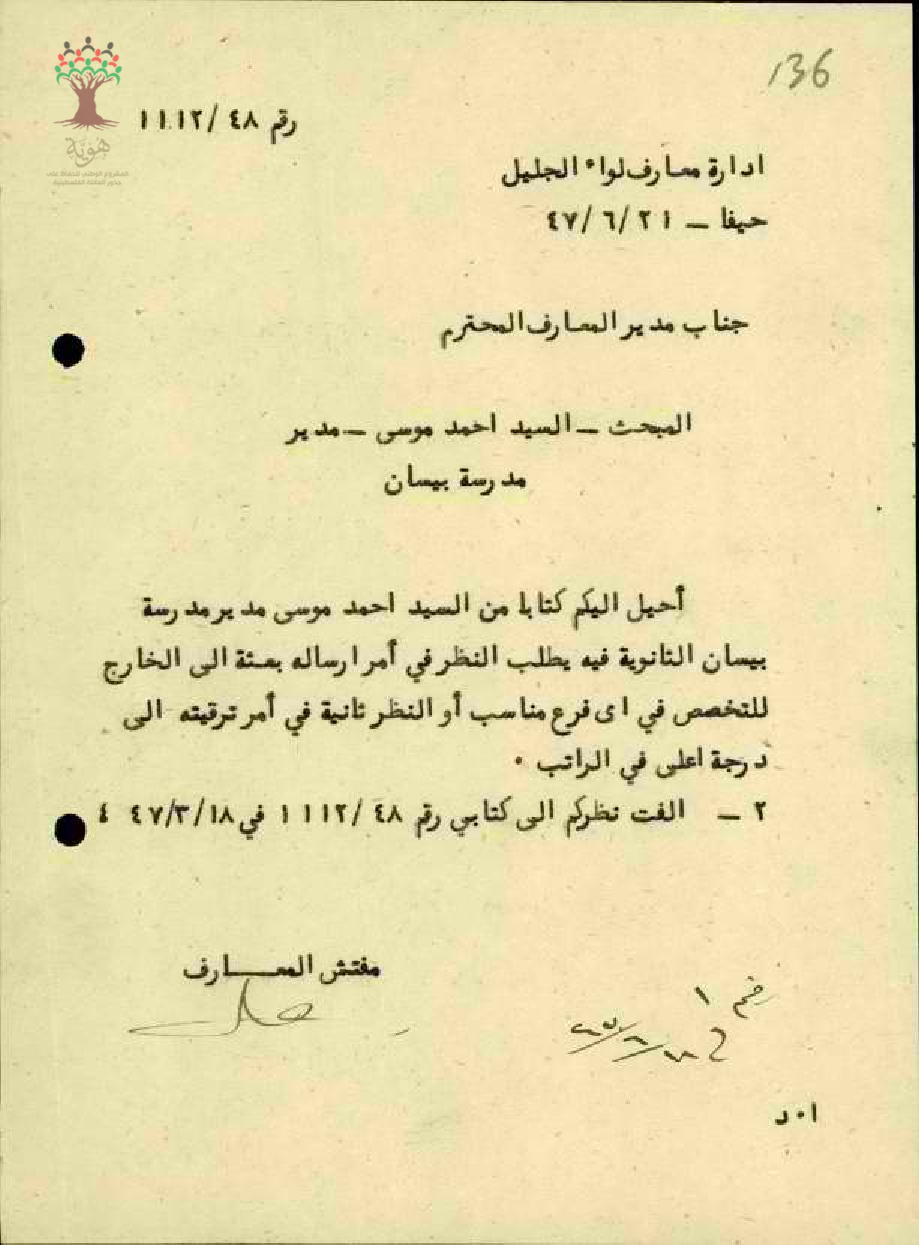 136
هوية
المشروع الوطني للحفاظ على
جذور العائلة الفلسطينية
رقم ٤٨/ ١١١٢
ادارة معارف لواء الجليل
حيفا – ٢١ /٦ /٤٧
جناب مدير المعارف المحترم
المبحث – السيد احمد موسى – مدير
مدرسة بيسان
أحيل اليكم كتابا من السيد احمد موسى مدير مدرسة
بيسان الثانوية فيه يطلب النظر في أمر ارساله بعثة الى الخارج
للتخصص في اى فرع مناسب أو النظر ثانية في أمر ترقيته الى
درجة اعلى في الراتب ٠
٢ – الفت نظركم الى كتابي رقم ٤٨/ ١١١٢ في ١٨/ ٣/ ٤٧ ٤
مفتش المعــــارف
ا ٠ د